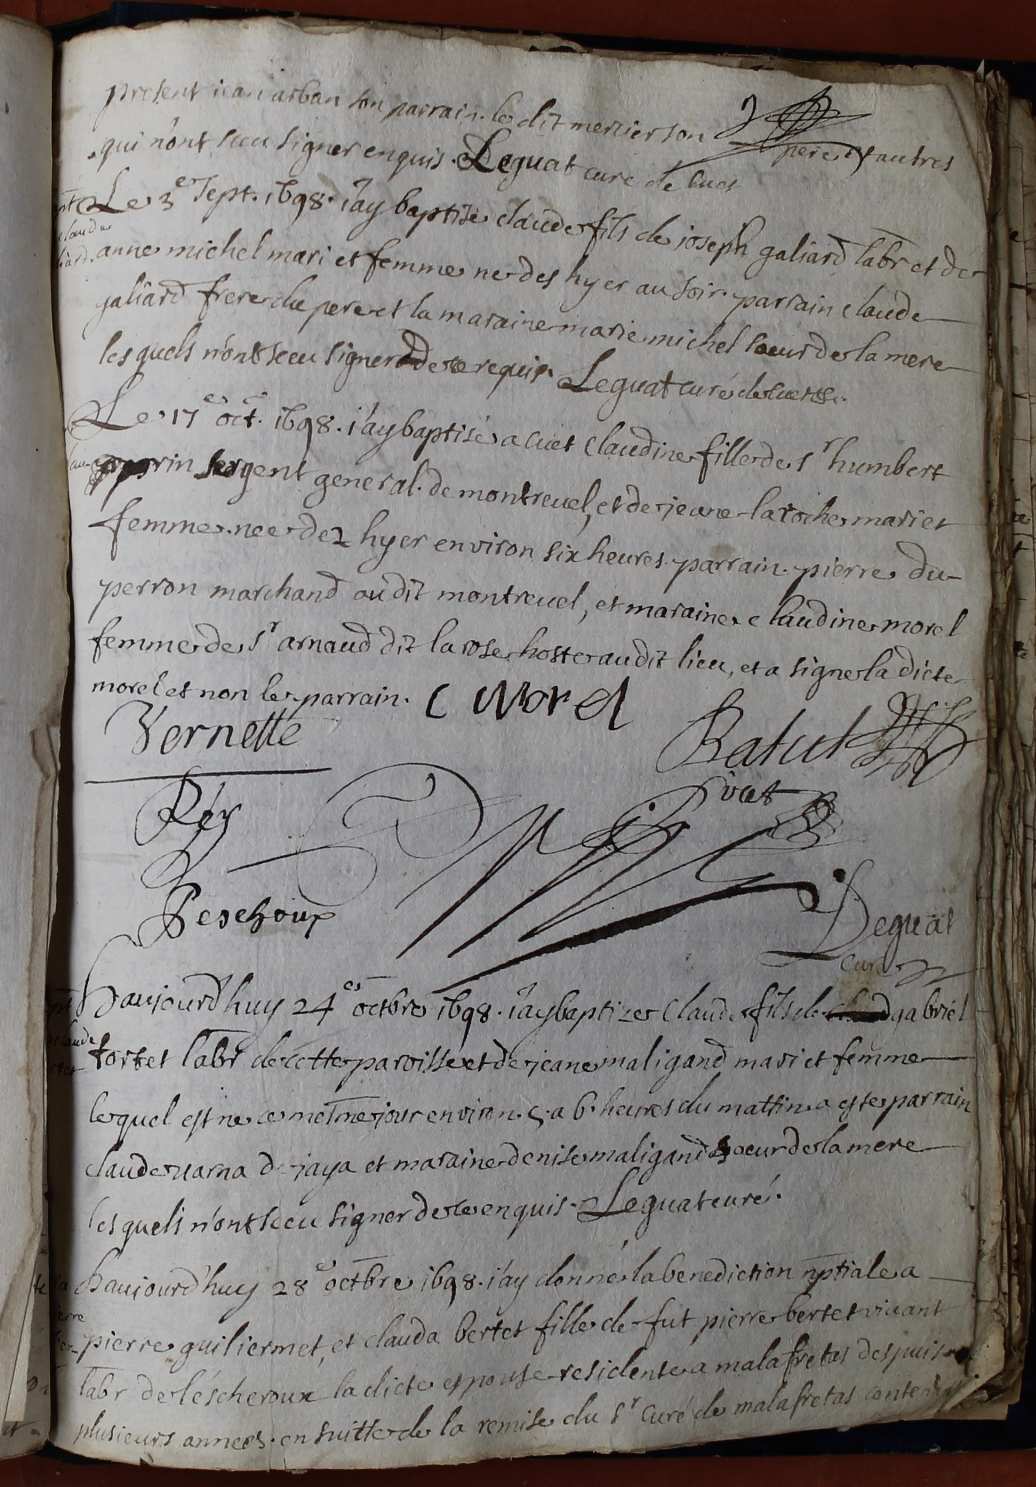 present jean arban son parrain. le dit mercier son pere et autres
qui n'ont sceu signer enquis. Leguat curé de Cuet
Le 3e Sept. 1698. j'ay baptisé claude fils de joseph galiard labr et de
anne michel mari et femme ne des hyer au soir. parrain claude
galiard frere du pere et la maraine marie michel soeur de la mere
les quels n'ont sceu signer de ce requis. Leguat curé de cuet
Le 17e oct. 1698. j'ay baptisé a cuet Claudine fille de Sr humbert
sergent general de montrevel, et de jeane laroche mari et
femme nee dez hyer environ six heures. parrain. pierre du-
perron marchand au dit montrevel, et maraine claudine morel
femme de Sr arnaud dit la rose hoste au dit lieu, et a signe la dicte
morel et non le parrain. C Morel
Vernette
Ratut
Rey
Peschoux
Leguat
curé
aujourd'huy 24e octbre 1698. j'ay baptize Claude fils de gabriel
tortet labr de cette paroisse et de jeane maligand mari et femme
lequel est ne ce mesme jour environ 5 a 6 heures du mattin a este parrain
claude varna de jaya et maraine denise maligand soeur de la mere
les quels n'ont sceu signer de ce enquis. Leguat curé.
aujourd'huy 28e octbre 1698. j'ay donné la benediction nptiale a
pierre guiliermet, et clauda bertet fille de fut pierre bertet vivant
labr de l'éscheroux la dicte espouse residente a malafretas despuis
plusieurs annees. en suitte de la remise du Sr curé de malafretas